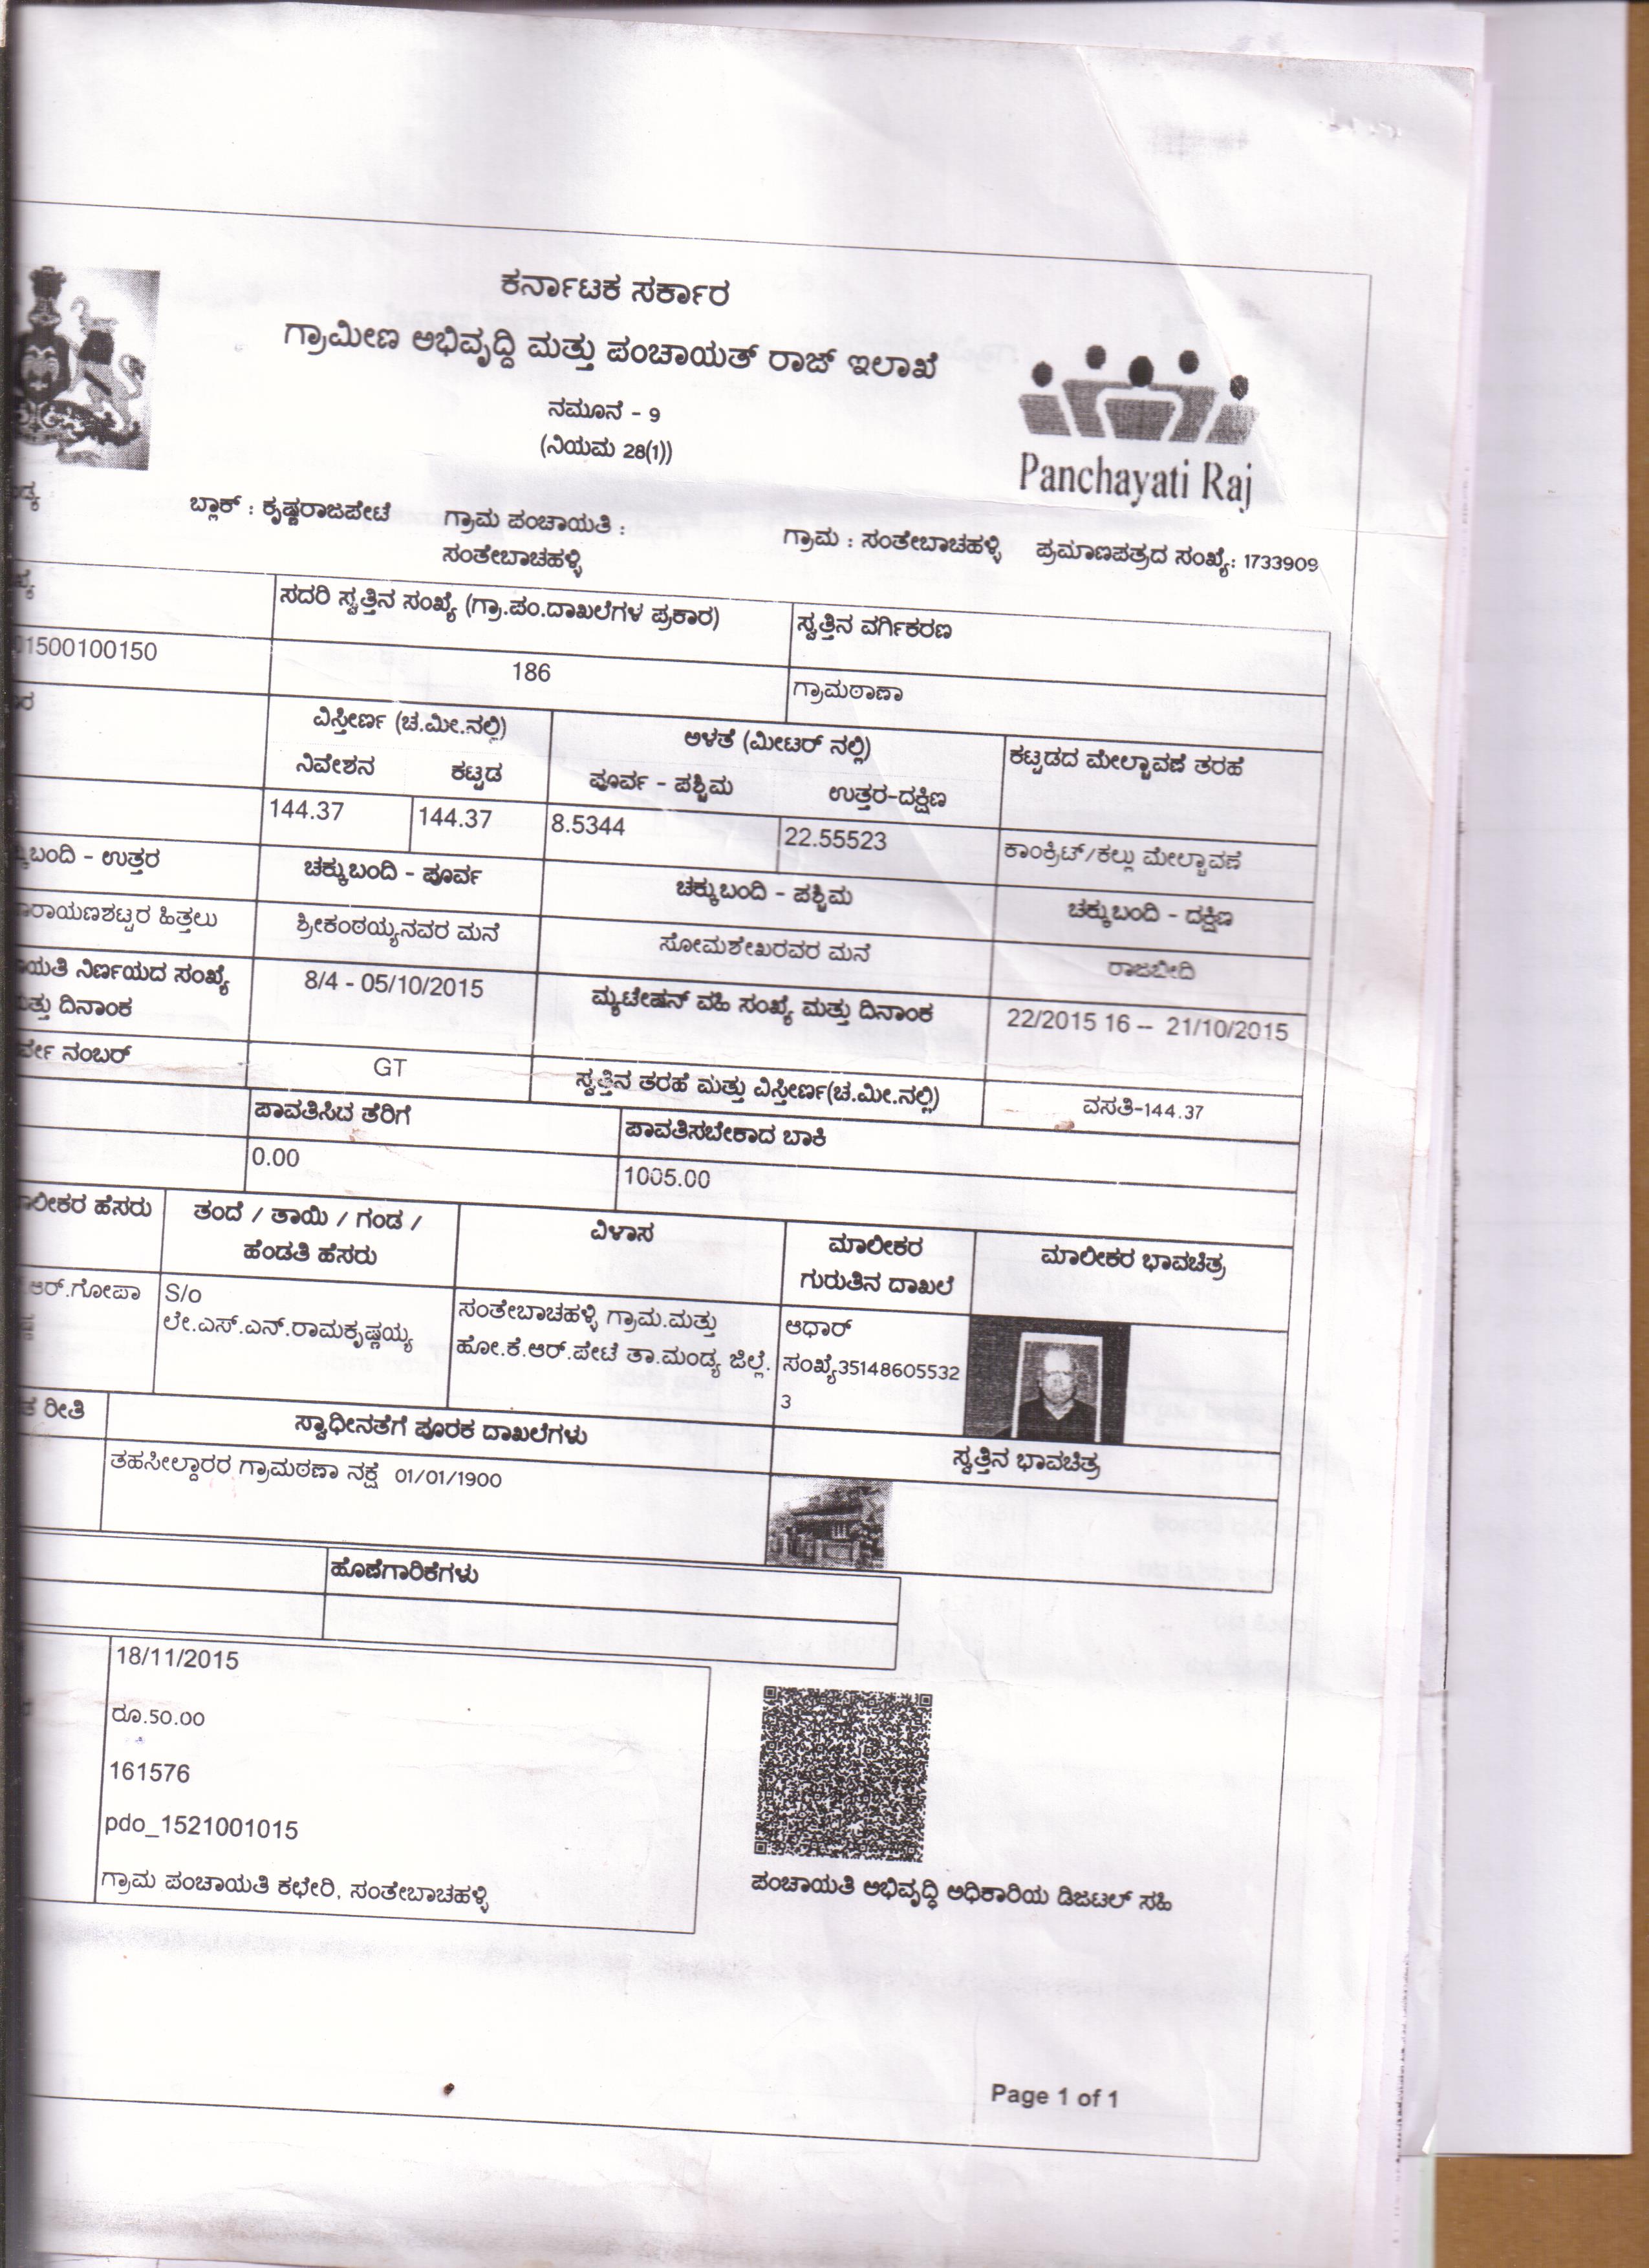 ಕರ್ನಾಟಕ ಸರ್ಕಾರ
ಗ್ರಾಮೀಣ ಅಭಿವೃದ್ದಿ ಮತ್ತು ಪಂಚಾಯತ್ ರಾಜ್ ಇಲಾಖೆ
ನಮೂನೆ - 9
(ನಿಯಮ 28(1))
Panchayati Raj
ಬ್ಲಾಕ್ : ಕೃಷ್ಣರಾಜಪೇಟೆ ಗ್ರಾಮ ಪಂಚಾಯತಿ : ಗ್ರಾಮ : ಸಂತೇಬಾಚಹಳ್ಳಿ ಪ್ರಮಾಣಪತ್ರದ ಸಂಖ್ಯೆ: 1733909
ಸಂತೇಬಾಚಹಳ್ಳಿ
ಸದರಿ ಸ್ವತ್ತಿನ ಸಂಖ್ಯೆ (ಗ್ರಾ.ಪಂ.ದಾಖಲೆಗಳ ಪ್ರಕಾರ) ಸ್ವತ್ತಿನ ವರ್ಗಿಕರಣ
01500100150 186 ಗ್ರಾಮಠಾಣಾ
ವಿಸ್ತೀರ್ಣ (ಚ.ಮೀ.ನಲ್ಲಿ) ಅಳತೆ (ಮೀಟರ್ ನಲ್ಲಿ) ಕಟ್ಟಡದ ಮೇಲ್ಚಾವಣೆ ತರಹೆ
ನಿವೇಶನ ಕಟ್ಟಡ ಪೂರ್ವ - ಪಶ್ಚಿಮ ಉತ್ತರ-ದಕ್ಷಿಣ
144.37 144.37 8.5344 22.55523 ಕಾಂಕ್ರಿಟ್/ಕಲ್ಲು ಮೇಲ್ಚಾವಣೆ
ಬಂದಿ - ಉತ್ತರ ಚಕ್ಕುಬಂದಿ - ಪೂರ್ವ ಚಕ್ಕುಬಂದಿ - ಪಶ್ಚಿಮ ಚಕ್ಕುಬಂದಿ - ದಕ್ಷಿಣ
ರಾಯಣಶೆಟ್ಟರ ಹಿತ್ತಲು ಶ್ರೀಕಂಠಯ್ಯನವರ ಮನೆ ಸೋಮಶೇಖರವರ ಮನೆ ರಾಜಬೀದಿ
ಯತಿ ನಿರ್ಣಯದ ಸಂಖ್ಯೆ 8/4 - 05/10/2015 ಮ್ಯುಟೇಷನ್ ವಹಿ ಸಂಖ್ಯೆ ಮತ್ತು ದಿನಾಂಕ 22/2015 16 -- 21/10/2015
ತ್ತು ದಿನಾಂಕ
ರ್ವೆ ನಂಬರ್ GT ಸ್ವತ್ತಿನ ತರಹೆ ಮತ್ತು ವಿಸ್ತೀರ್ಣ(ಚ.ಮೀ.ನಲ್ಲಿ) ವಸತಿ-144.37
ಪಾವತಿಸಿದ ತೆರಿಗೆ ಪಾವತಿಸಬೇಕಾದ ಬಾಕಿ
0.00 1005.00
ಲೀಕರ ಹೆಸರು ತಂದೆ / ತಾಯಿ / ಗಂಡ / ವಿಳಾಸ ಮಾಲೀಕರ ಮಾಲೀಕರ ಭಾವಚಿತ್ರ
ಹೆಂಡತಿ ಹೆಸರು ಗುರುತಿನ ದಾಖಲೆ
.ಆರ್.ಗೋಪಾ S/o ಸಂತೇಬಾಚಹಳ್ಳಿ ಗ್ರಾಮ.ಮತ್ತು ಆಧಾರ್
ಲೇ.ಎಸ್.ಎನ್.ರಾಮಕೃಷ್ಣಯ್ಯ ಹೋ.ಕೆ.ಆರ್.ಪೇಟೆ ತಾ.ಮಂಡ್ಯ ಜಿಲ್ಲೆ. ಸಂಖ್ಯೆ35148605532
3
ರೀತಿ ಸ್ವಾಧೀನತೆಗೆ ಪೂರಕ ದಾಖಲೆಗಳು ಸ್ವತ್ತಿನ ಭಾವಚಿತ್ರ
ತಹಸೀಲ್ದಾರರ ಗ್ರಾಮಠಣಾ ನಕ್ಷೆ 01/01/1900
ಹೊಣೆಗಾರಿಕೆಗಳು
18/11/2015
ರೂ.50.00
161576
pdo_1521001015
ಗ್ರಾಮ ಪಂಚಾಯತಿ ಕಛೇರಿ, ಸಂತೇಬಾಚಹಳ್ಳಿ
ಪಂಚಾಯತಿ ಅಭಿವೃದ್ಧಿ ಅಧಿಕಾರಿಯ ಡಿಜಟಲ್ ಸಹಿ
Page 1 of 1